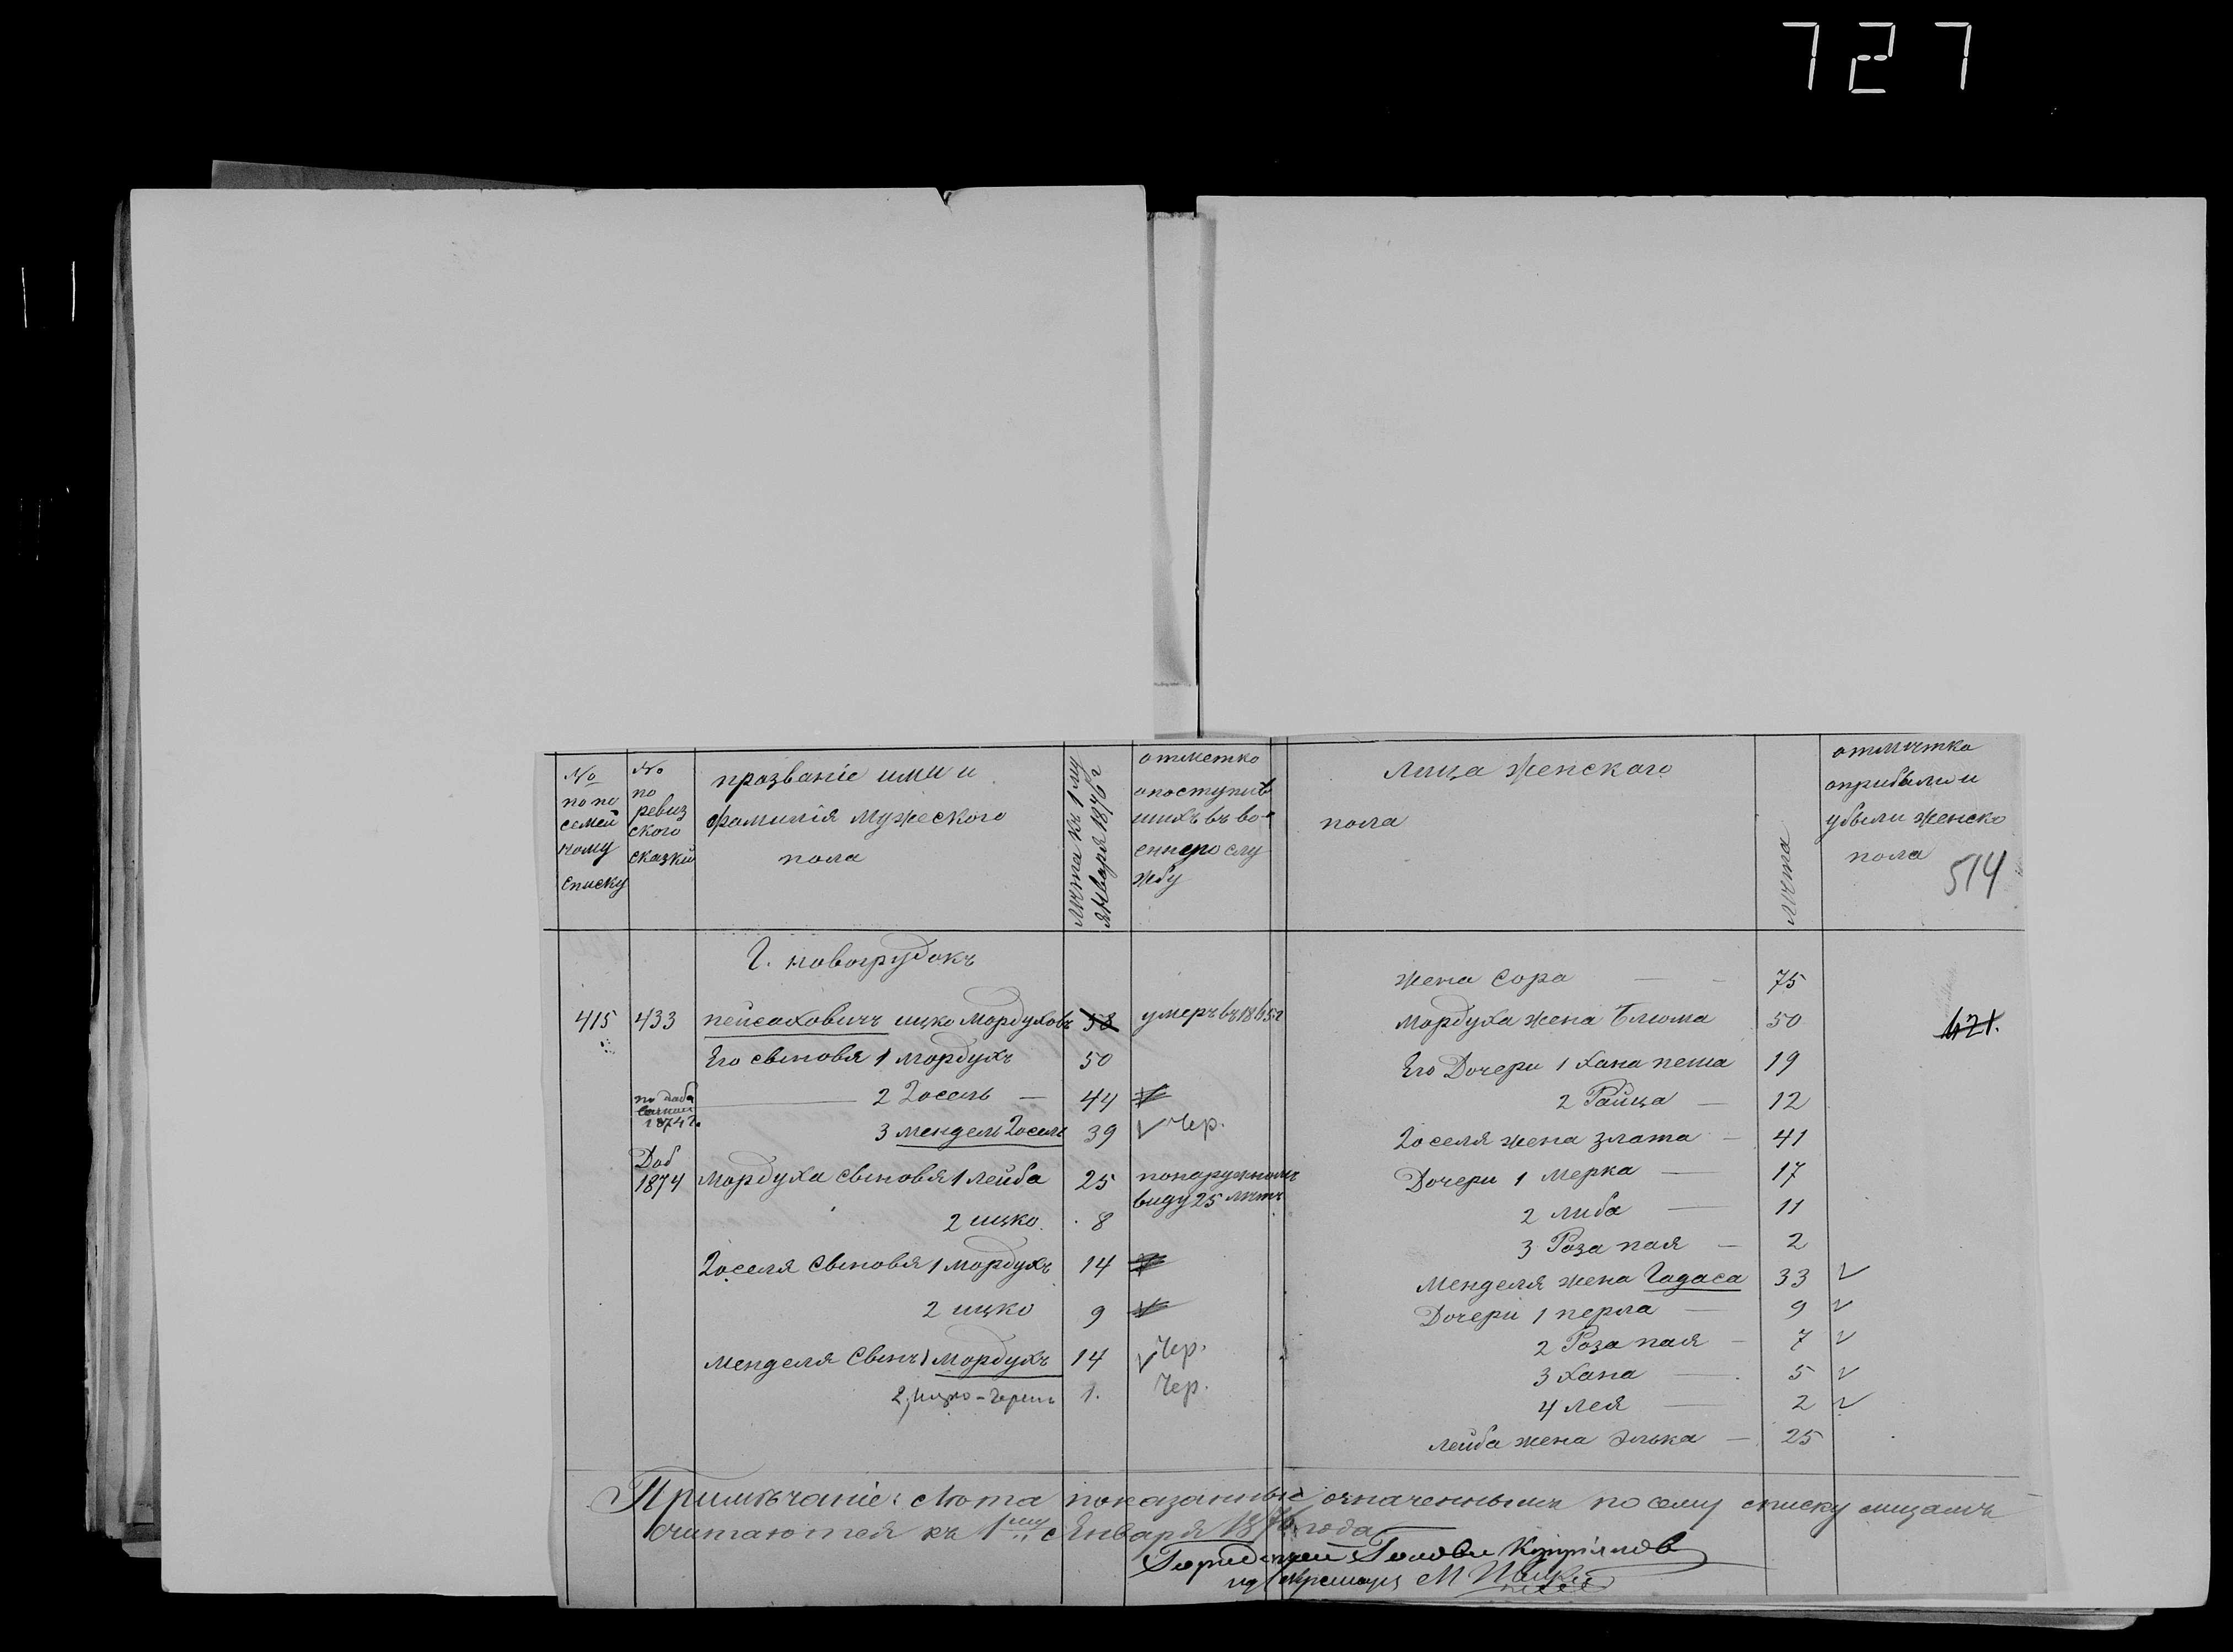 727
№ по по семей ному списку
№ по ревиз ского сказки
прозваніе ими и фамилія мужеского пола
лѣта къ 1 му января 1876 г
отметко о поступив шихъ въ во- енную слу жбу
лица женского пола
лѣта
отмѣтка о прибыли и убыли женско пола
514
Г. новогрудокъ
жена Сора — - 75
415 433 пейсаховичъ ицко Мордуховъ 58 умеръ въ 18
Мордуха жена Блюма 50
421.
Его сыновя 1 Мордухъ 50
Его Дочери 1 Хана пеша 19
2 Іосель — 44
2 Райца — 12
1874 г.
3 мендель Іосель 39 V Чер.
Іоселя жена злата - 41
Доб 1874 Мордуха сыновя 1 лейба 25 по наружному виду 25 лѣтъ
Дочери 1 мерка — 17
2 ицко. 8
2 либа — 11
3 Роза пая — 2
Іоселя сыновя 1 мордухъ 14
Менделя жена Гадаса 33 V
2 ицко 9
Дочери 1 перла — 9 V
2 Роза пая - 7 V
Менделя Сынъ 1 Мордухъ 14 V Чер.
3 Хана — 5 V
2, Ицко - 1. Чер.
4 лея — 2 V
лейба жена Элька — 25
Примѣчаніе: лѣта показанные означеннымъ по сему списку лицамъ
считаются къ 1му Января 1876 года
Городской Голова
М